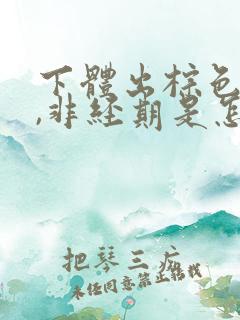 下體出棕色
,非经期是怎
把琴三疾
未任同意禁止转找